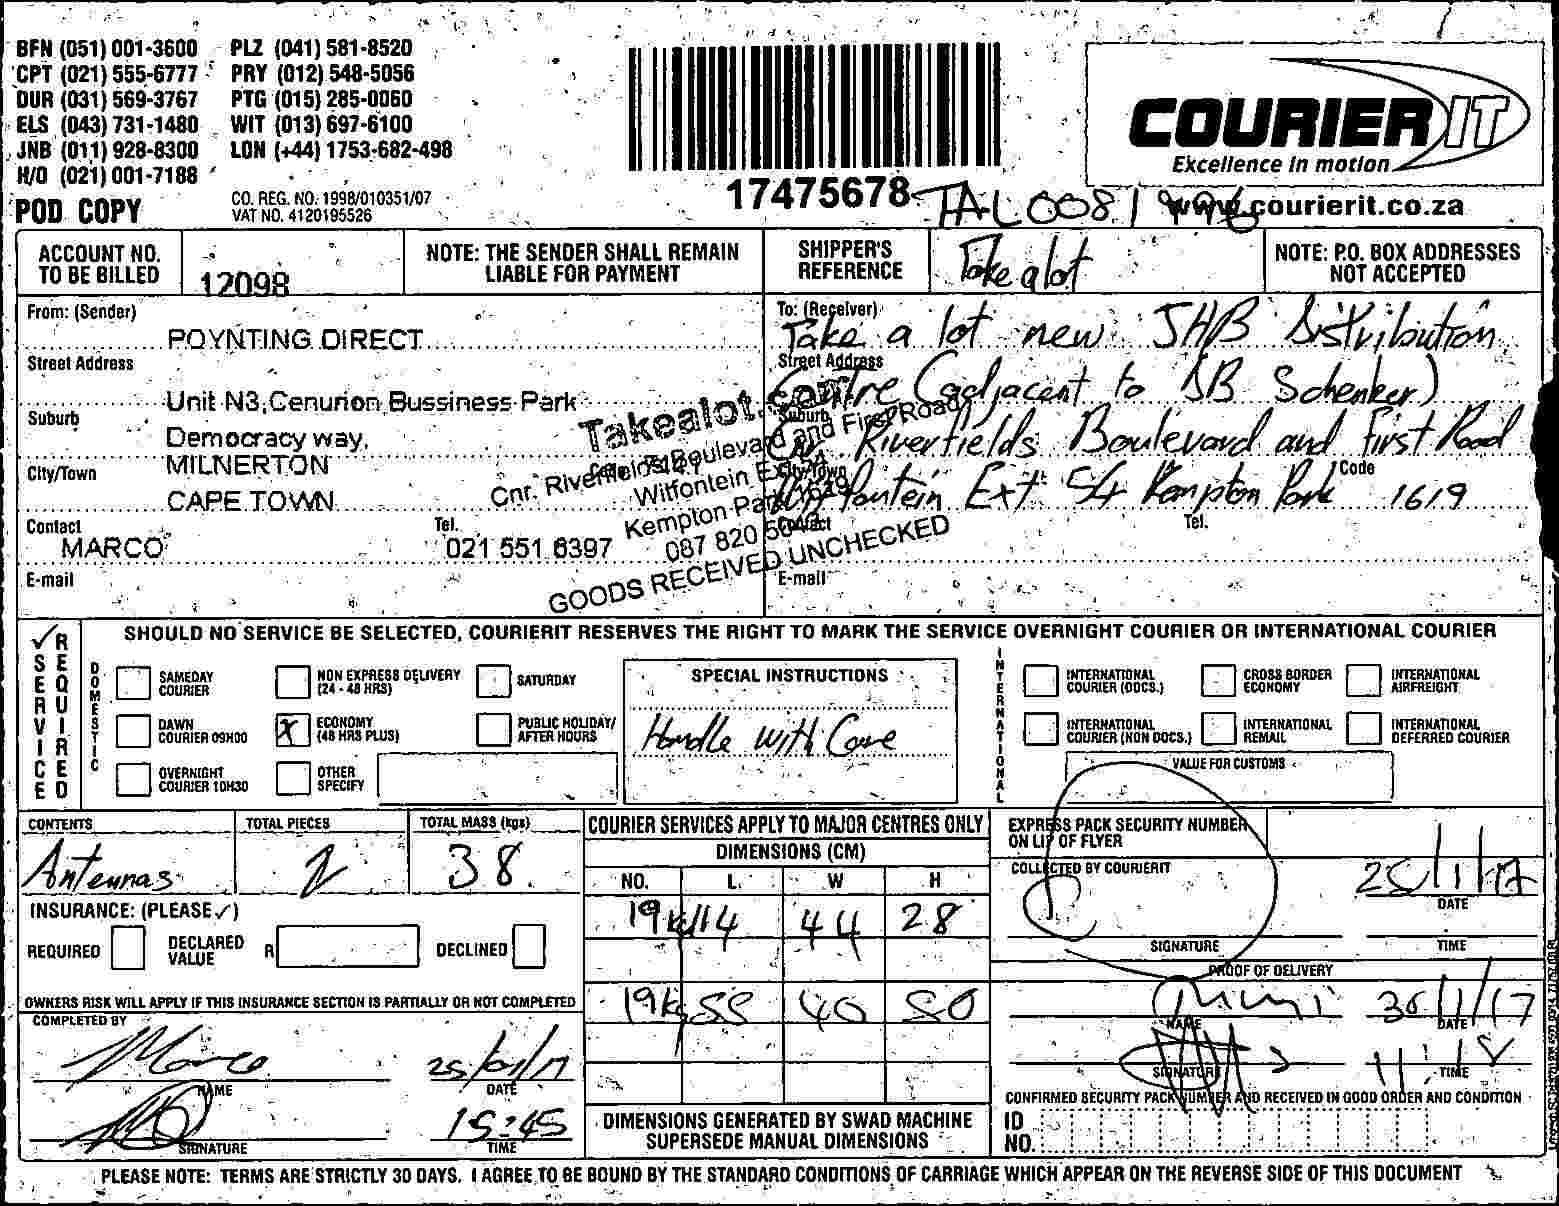 BFN (051) 001-3600 PLZ (041) 581-8520
CPT (021) 555-6777 PRY (012) 548-5056
DUR (031) 569-3767 PTG (015) 285-0060
ELS (043) 731-1480 WIT (013) 697-6100
JNB (011) 928-8300 LON (+44) 1753-682-498
H/O (021) 001-7188
POD COPY
CO. REG. NO. 1998/010351/07
VAT NO. 4120195526
17475678
COURIER IT
Excellence in motion
www.courierit.co.za
ACCOUNT NO. TO BE BILLED
12098
NOTE: THE SENDER SHALL REMAIN LIABLE FOR PAYMENT
SHIPPER'S REFERENCE
Take a lot
NOTE: P.O. BOX ADDRESSES NOT ACCEPTED
From: (Sender)
POYNTING DIRECT
Street Address
Unit N3,Cenurion Bussiness Park
Suburb
Democracy way,
MILNERTON
City/Town
CAPE TOWN
Contact
MARCO
Tel.
021 551 6397
E-mail
To: (Receiver)
Take a lot new JHB Distribution
Street Address
Centre (adjacent to DB Schenker)
Suburb
Cnr. Riverfields Boulevard and First Road
City/Town
Witfontein Ext 54 Kempton Park
Code
1619
Contact
Tel.
E-mail
Takealot.com
Cnr. Riverfields Boulevard and First Road
Witfontein Ext 54
Kempton Park 1619
087 820
GOODS RECEIVED UNCHECKED
SERVICE REQUIRED
SHOULD NO SERVICE BE SELECTED, COURIERIT RESERVES THE RIGHT TO MARK THE SERVICE OVERNIGHT COURIER OR INTERNATIONAL COURIER
DOMESTIC
SAMEDAY COURIER
NON EXPRESS DELIVERY (24 - 48 HRS)
SATURDAY
DAWN COURIER 09H00
X
ECONOMY (48 HRS PLUS)
PUBLIC HOLIDAY/ AFTER HOURS
OVERNIGHT COURIER 10H30
OTHER SPECIFY
SPECIAL INSTRUCTIONS
Handle with Care
INTERNATIONAL
INTERNATIONAL COURIER (DOCS.)
CROSS BORDER ECONOMY
INTERNATIONAL AIRFREIGHT
INTERNATIONAL COURIER (NON DOCS.)
INTERNATIONAL REMAIL
INTERNATIONAL DEFERRED COURIER
VALUE FOR CUSTOMS
CONTENTS
Antennas
TOTAL PIECES
2
TOTAL MASS (kgs)
38
INSURANCE: (PLEASE ✓)
REQUIRED
DECLARED VALUE
R
DECLINED
OWNERS RISK WILL APPLY IF THIS INSURANCE SECTION IS PARTIALLY OR NOT COMPLETED
COMPLETED BY
Marco
NAME
25/01/17
DATE
SIGNATURE
15:45
TIME
COURIER SERVICES APPLY TO MAJOR CENTRES ONLY
DIMENSIONS (CM)
NO. L. W H
19kg 114 44 28
19kg
DIMENSIONS GENERATED BY SWAD MACHINE SUPERSEDE MANUAL DIMENSIONS
EXPRESS PACK SECURITY NUMBER ON LIP OF FLYER
COLLECTED BY COURIERIT
25/1/17
DATE
SIGNATURE
TIME
PROOF OF DELIVERY
NAME
30/1/17
DATE
SIGNATURE
TIME
CONFIRMED SECURITY PACK NUMBER AND RECEIVED IN GOOD ORDER AND CONDITION
ID NO.
PLEASE NOTE: TERMS ARE STRICTLY 30 DAYS. I AGREE TO BE BOUND BY THE STANDARD CONDITIONS OF CARRIAGE WHICH APPEAR ON THE REVERSE SIDE OF THIS DOCUMENT